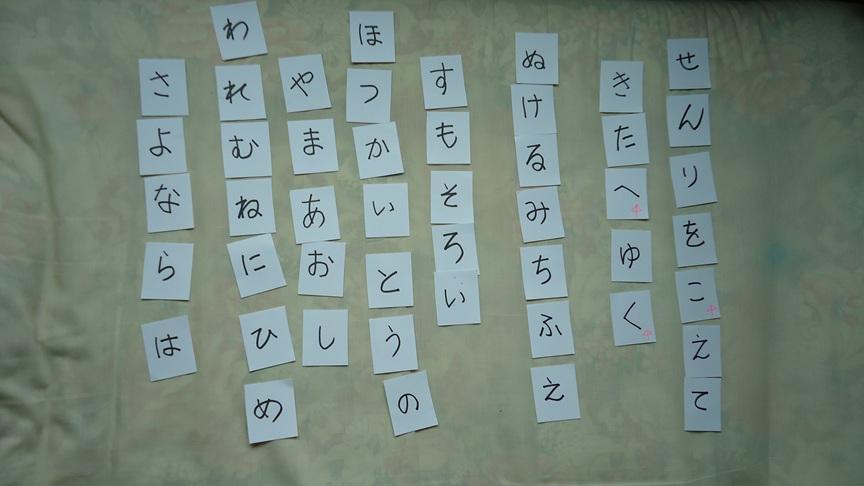 せんりをこえて
きたへゆく
ぬけるみちふえ
すもそろい
ほつかいとうの
やまあおし
われむねにひめ
さよならは